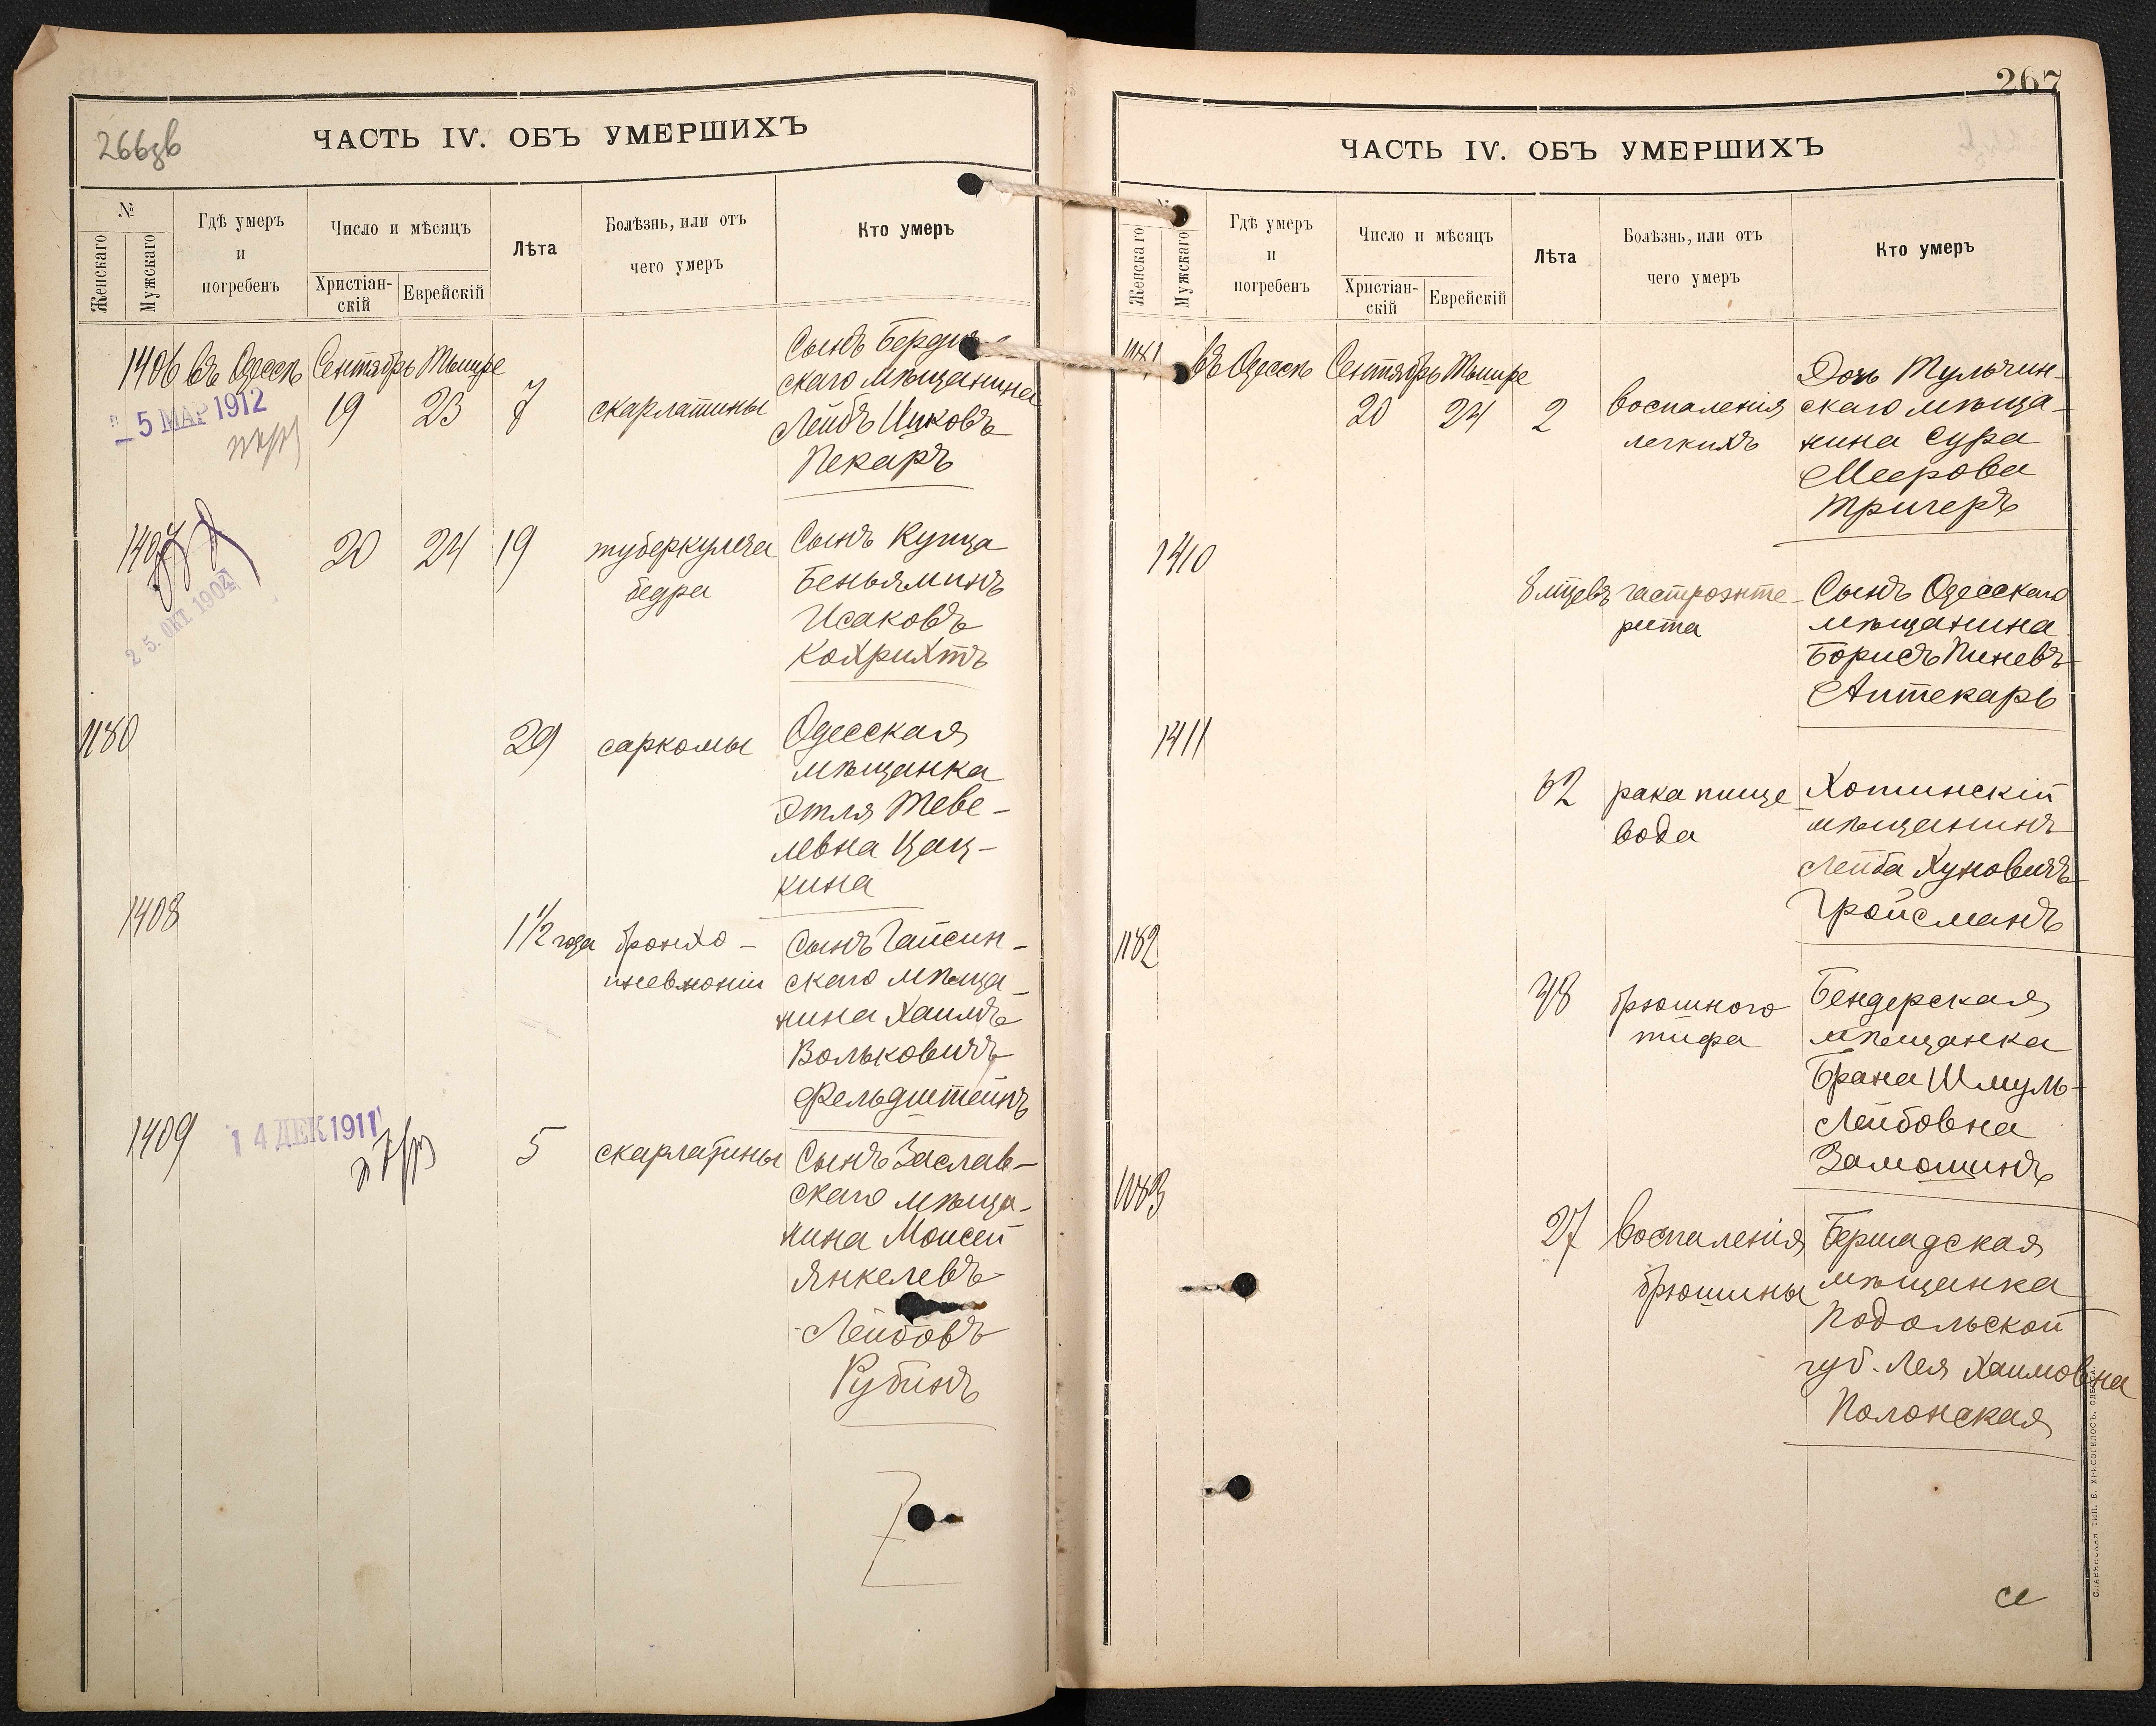 266зв
ЧАСТЬ IV. ОБЪ УМЕРШИХЪ
№
Женскаго
Мужскаго
Гдѣ умеръ
и
погребенъ
Число и мѣсяцъ
Христіан-
скій
Еврейскій
Лѣта
Болѣзнь, или отъ
чего умеръ
Кто умеръ
1406 въ Одессѣ Сентябрь Тышре
5 МАР 1912
19 23 7 скарлатины
Сынъ Берди
скаго мѣщанина
Лейбъ Ицковъ
Пекаръ
1407 20 24 19 туберкулеза
бедра
Сынъ Купца
Беньяминъ
Исаковъ
Кохрихтъ
25. ОКТ. 1904
1180 29 саркомы
Одесская
мѣщанка
Этля Теве-
левна Цац-
кина
1408 1 1/2 года бронхо-
пневмоніи
Сынъ Гайсин-
скаго мѣща-
нина Хаимъ
Вольковичъ
Фельдштейнъ
1409 14 ДЕК 1911
5 скарлатины
Сынъ Заслав-
скаго мѣща-
нина Моисей
Янкелевъ-
-Лейбовъ
Рубинъ
267
ЧАСТЬ IV. ОБЪ УМЕРШИХЪ
№
Женскаго
Мужскаго
Гдѣ умеръ
и
погребенъ
Число и мѣсяцъ
Христіан-
скій
Еврейскій
Лѣта
Болѣзнь, или отъ
чего умеръ
Кто умеръ
1181 въ Одессѣ Сентябрь Тышре
20 24 2 воспаленія
легкихъ
Дочь Тульчин-
скаго мѣща-
нина Сура
Меерова
Тричеръ
1410
8 мцевъ гастроэнте-
рита
Сынъ Одесскаго
мѣщанина
Борисъ Пиневъ
Аптекарь
1411
62 рака пище-
вода
Хотинскій
мѣщанинъ
Лейба Хуновичъ
Гройсманъ
1182
38 брюшного
тифа
Бендерская
мѣщанка
Брана Шмуль-
Лейбовна
Замошинъ
1183
27 воспаленія
брюшины
Бершадская
мѣщанка
Подольской
губ. Лея Хаимовна
Полонская
СЛАВЯНСКАЯ ТИП. Е. ХРИСОГЕЛОСЪ, ОДЕССА.